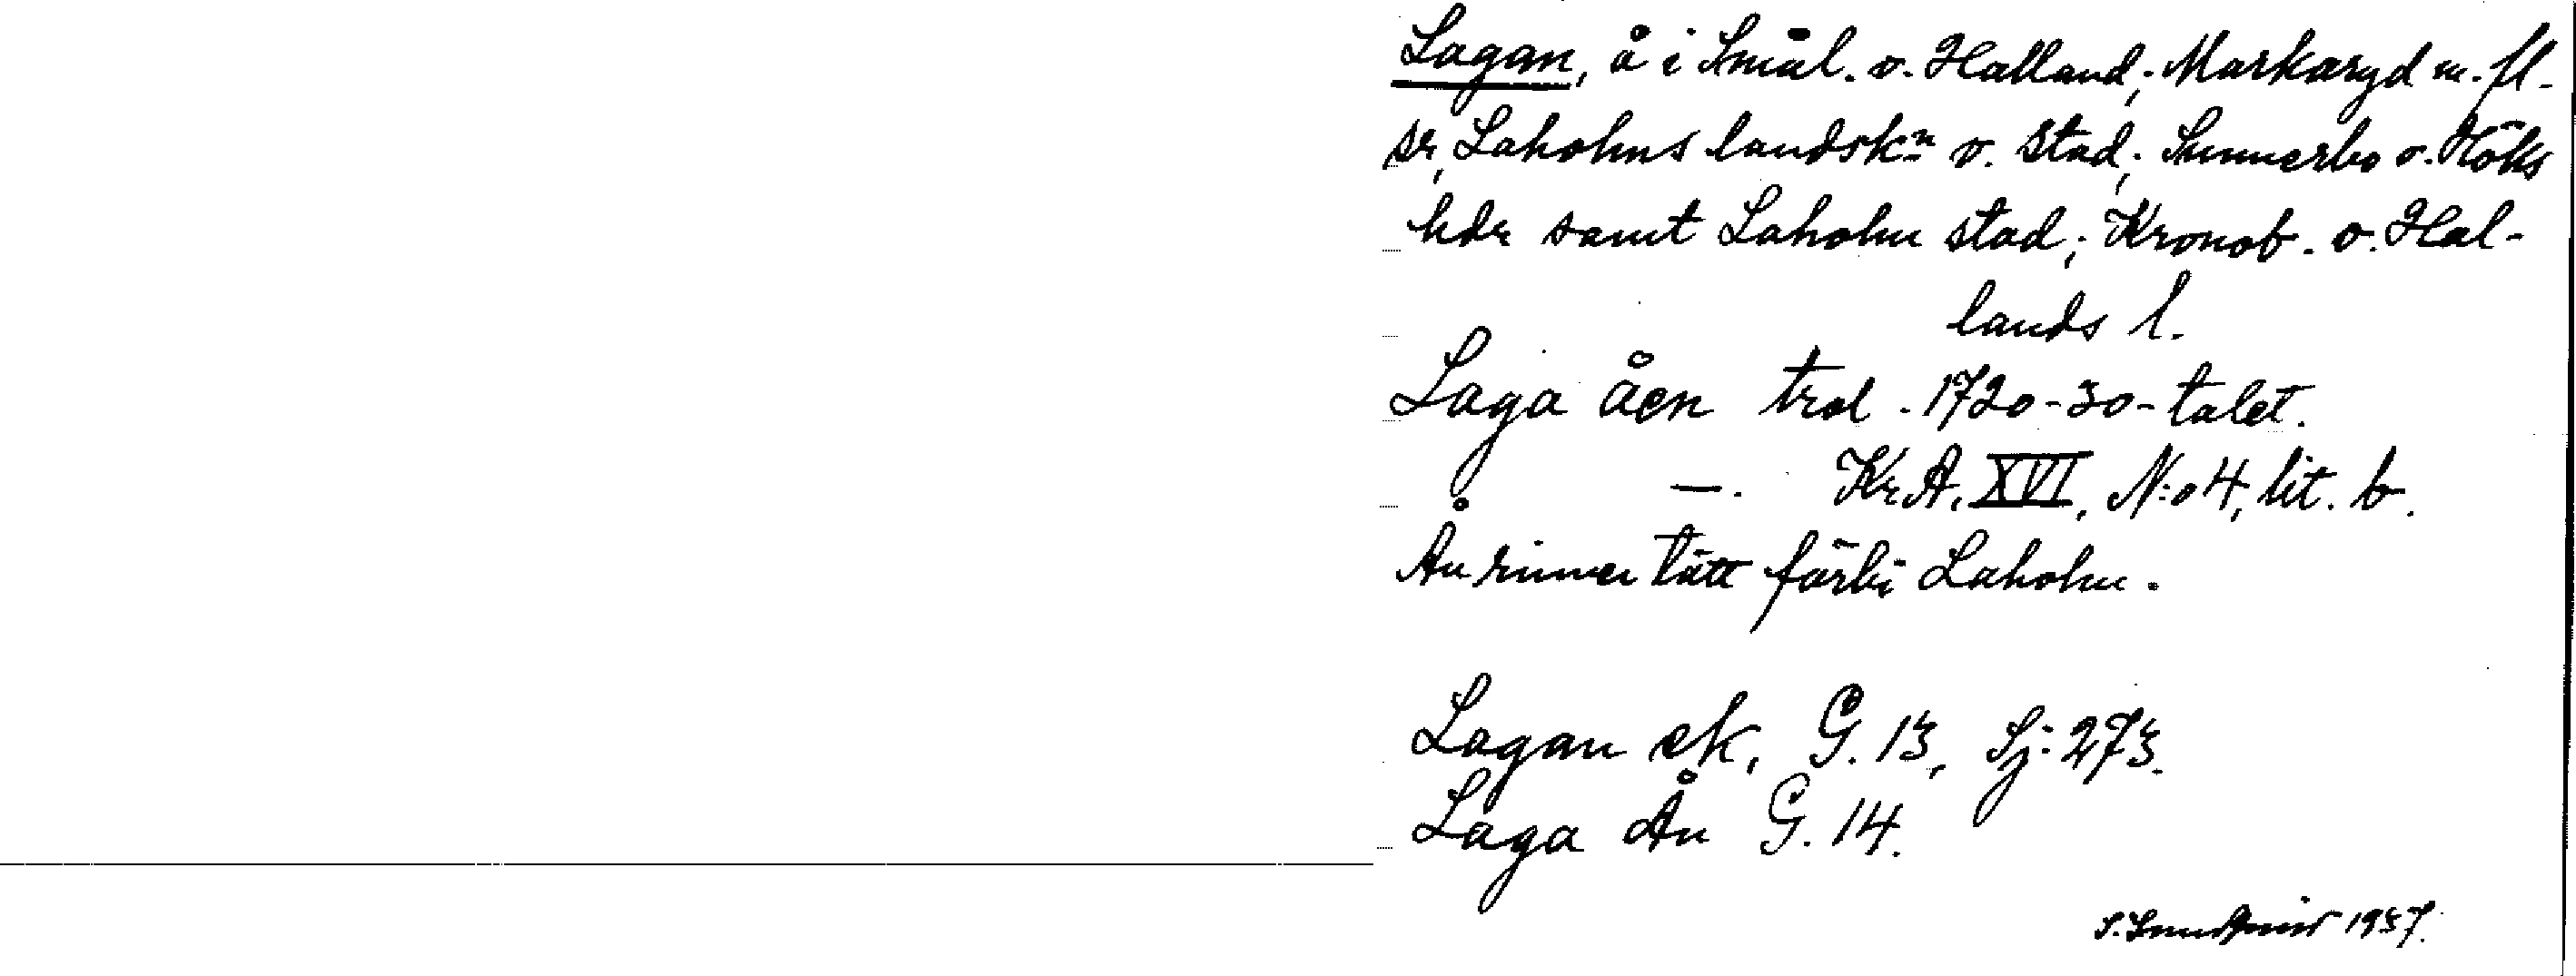 Lagan, å i Smål. o. Halland; Markaryd m. fl.
sr, Laholms landskn o. stad; Sunnerbo o. Höks
hdr samt Laholm stad; Kronob. o. Hal-
lands l.
Laga åen trol. 1720-30-talet.
—. Kr.A. XVI, N:o 4, lit. b.
Ån rinner tätt förbi Laholm.
Lagan ek, G. 13, Sj: 273.
Laga Ån G. 14.
1937.